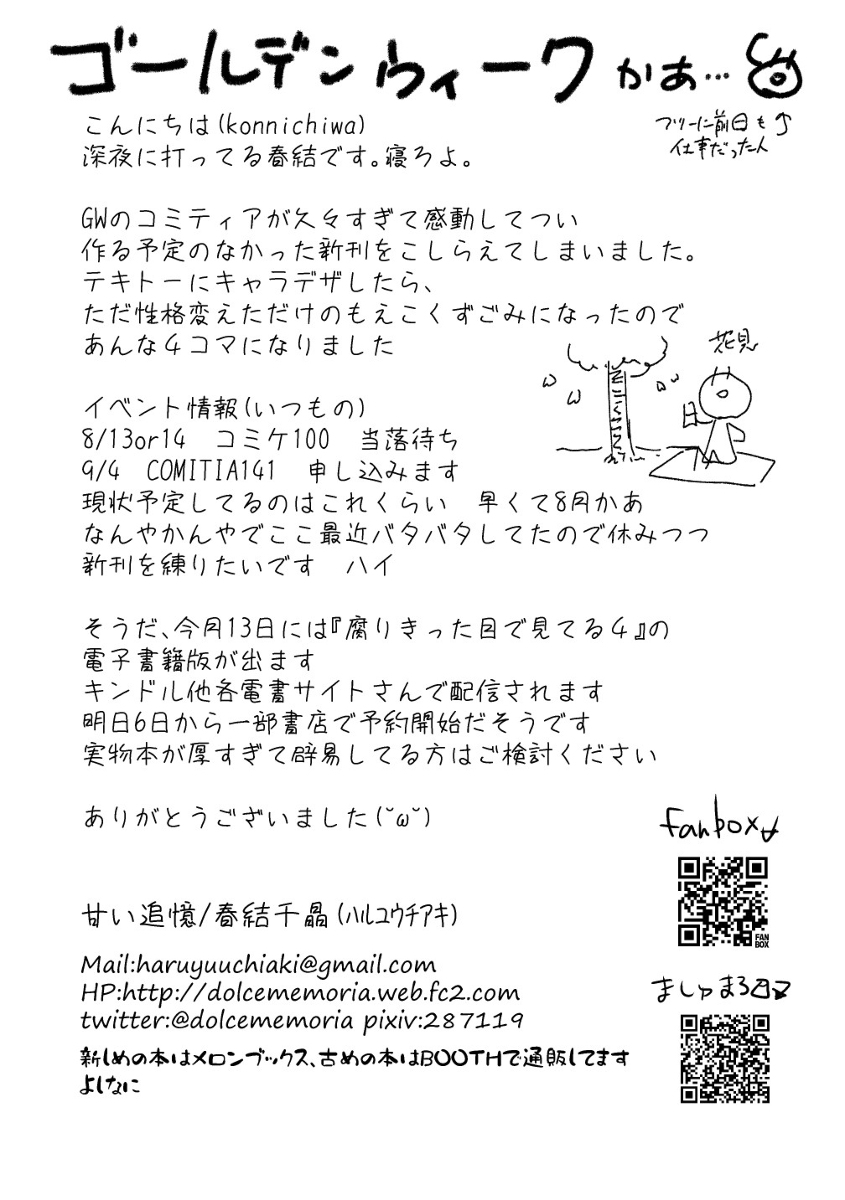 ゴールデンウィークかあ…
フツーに前日も↑
仕事だった人
こんにちは(konnichiwa)
深夜に打ってる春結です。寝ろよ。
GWのコミティアが久々すぎて感動してつい
作る予定のなかった新刊をこしらえてしまいました。
テキトーにキャラデザしたら、
ただ性格変えただけのもえこくずごみになったので
あんな4コマになりました
花見
イベント情報(いつもの)
8/13or14　コミケ100　当落待ち
9/4　COMITIA141　申し込みます
現状予定してるのはこれくらい　早くて8月かあ
なんやかんやでここ最近バタバタしてたので休みつつ
新刊を練りたいです　ハイ
そうだ、今月13日には『腐りきった目で見てる4』の
電子書籍版が出ます
キンドル他各電書サイトさんで配信されます
明日6日から一部書店で予約開始だそうです
実物本が厚すぎて辟易してる方はご検討ください
ありがとうございました(˘ω˘)
fanbox↓
FAN
BOX
甘い追憶/春結千晶(ﾊﾙﾕｳﾁｱｷ)
Mail:haruyuuchiaki@gmail.com
HP:http://dolcememoria.web.fc2.com
twitter:@dolcememoria pixiv:287119
ましゅまろ
新しめの本はメロンブックス、古めの本はBOOTHで通販してます
よしなに